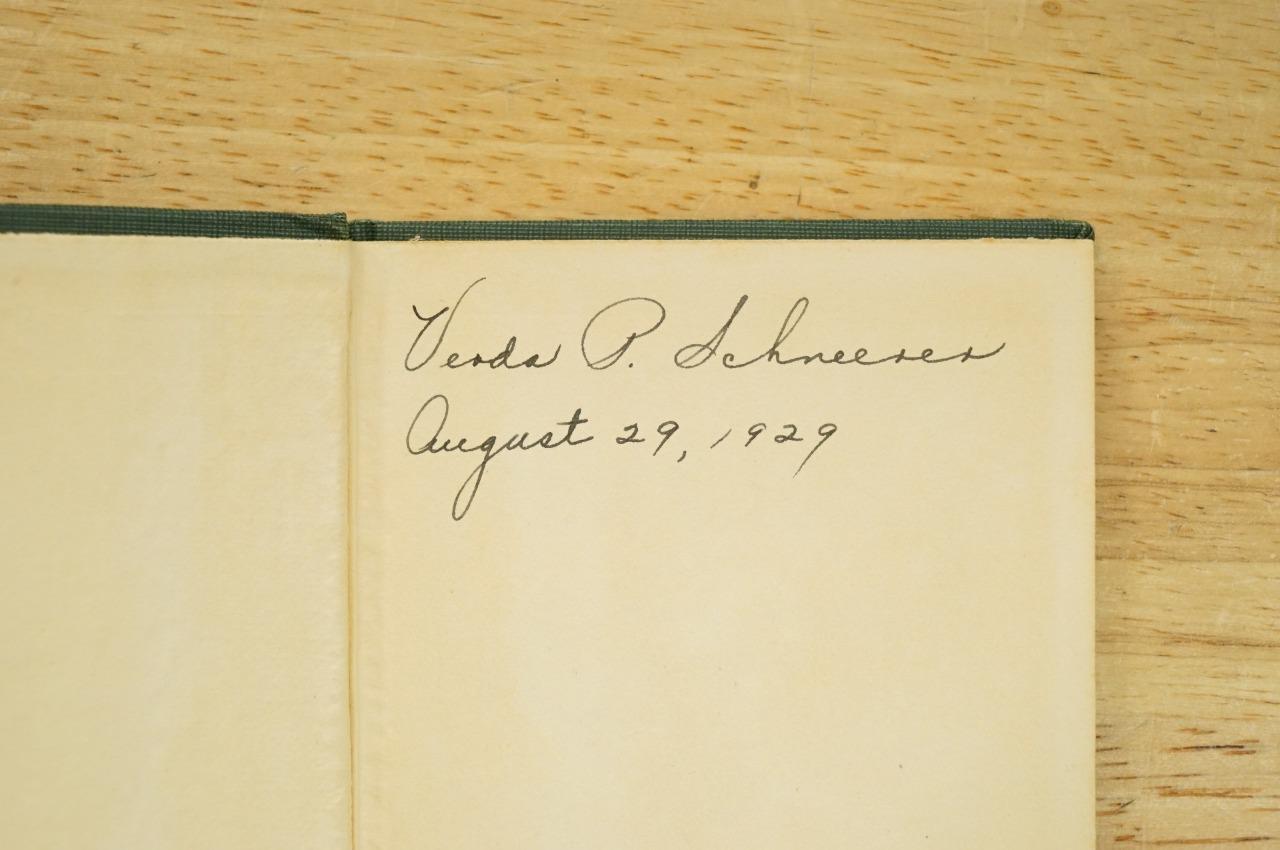 Verda P. Schneerer
August 29, 1929